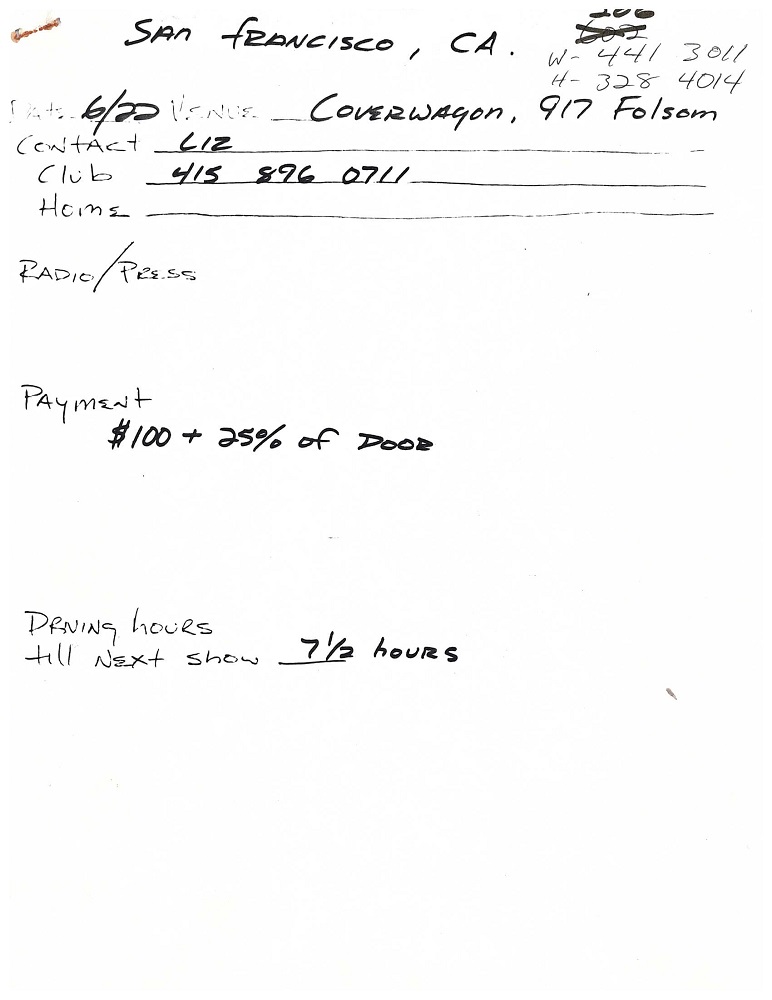 San Francisco, CA.
W- 441 3011
H- 328 4014
Date 6/22 Venue Coverwagon, 917 Folsom
Contact LIZ
Club 415 896 0711
Home
Radio/Press
Payment
$100 + 25% of Door
Driving hours
till next show 7 1/2 hours